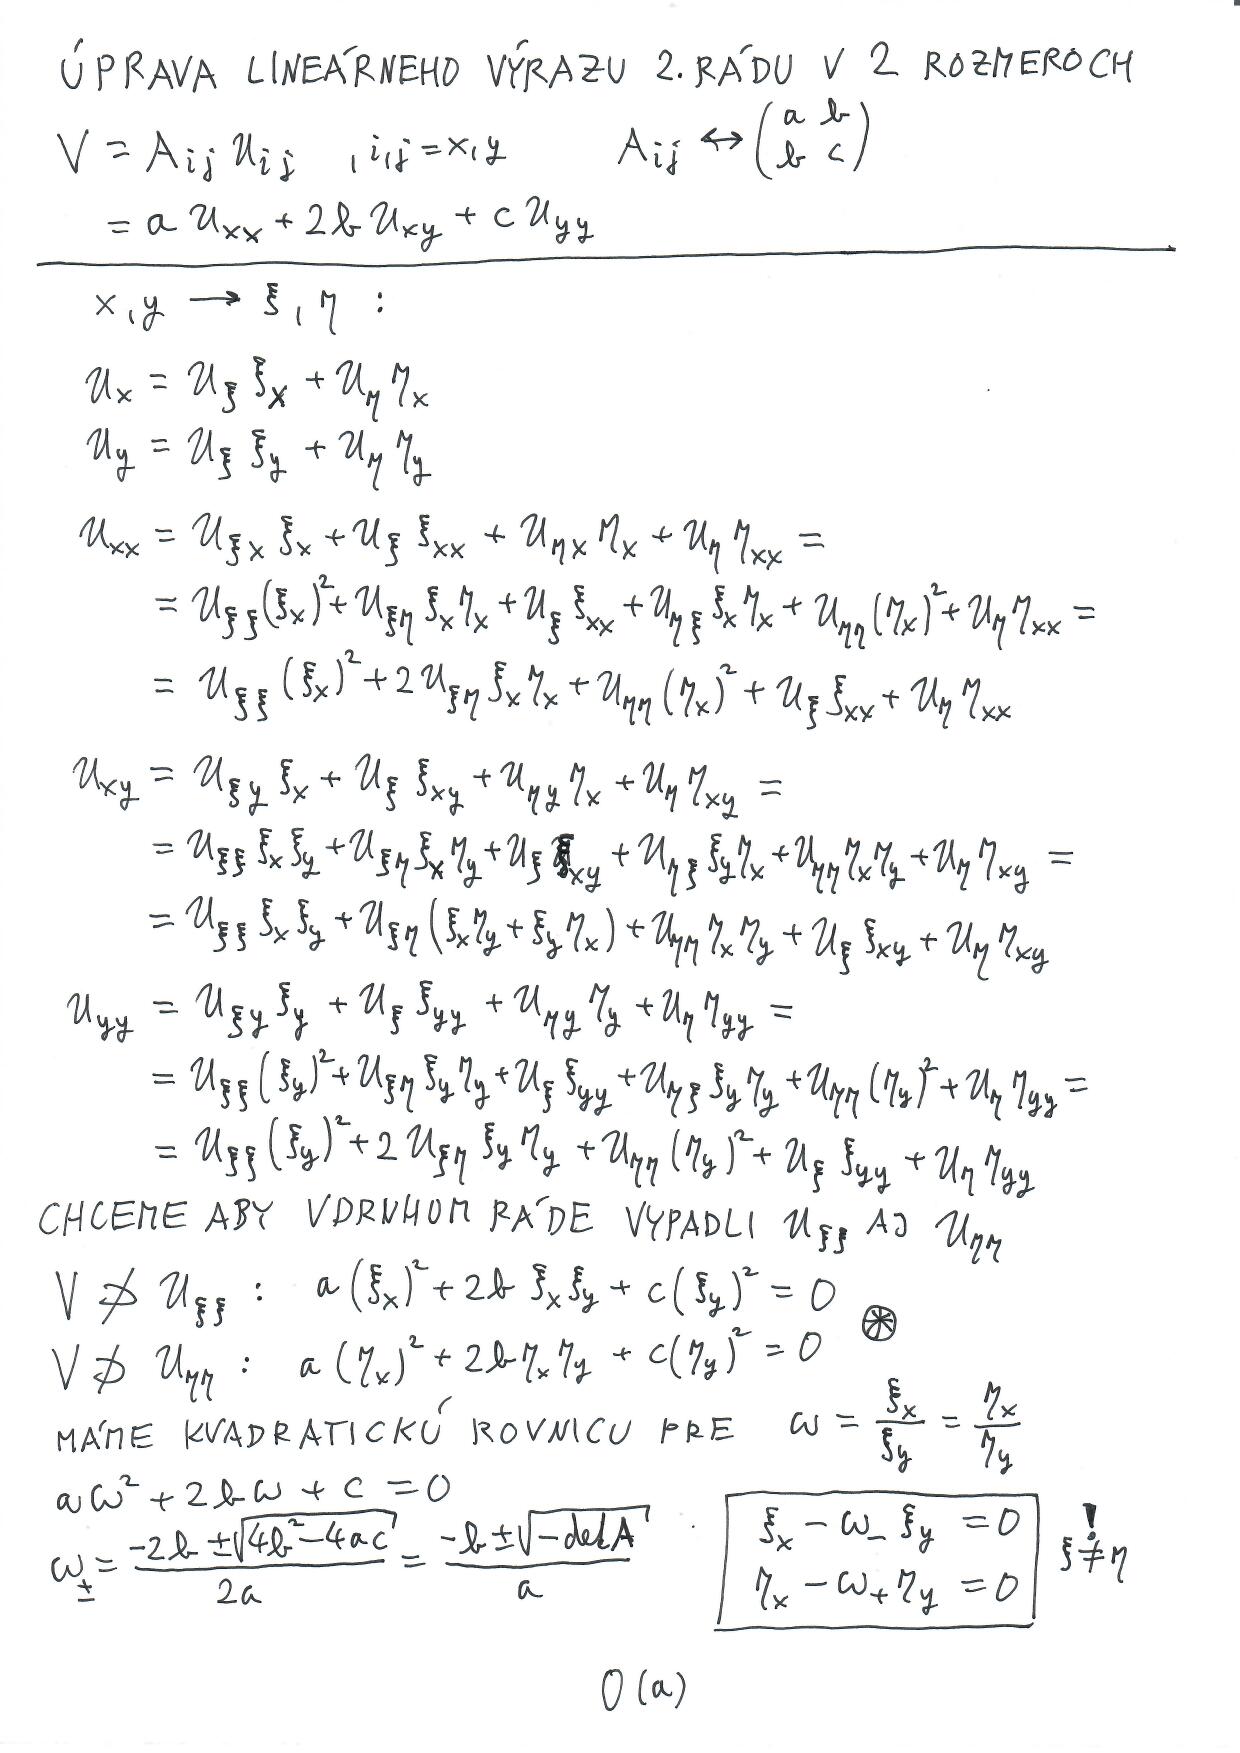 ÚPRAVA LINEÁRNEHO VÝRAZU 2. RÁDU V 2 ROZMEROCH
V = A_{ij} u_{ij} , i,j = x,y    A_{ij} ↔ (a b; b c)
= a u_{xx} + 2b u_{xy} + c u_{yy}
x,y → ξ, η :
u_x = u_ξ ξ_x + u_η η_x
u_y = u_ξ ξ_y + u_η η_y
u_{xx} = u_{ξx} ξ_x + u_ξ ξ_{xx} + u_{ηx} η_x + u_η η_{xx} =
= u_{ξξ} (ξ_x)² + u_{ξη} ξ_x η_x + u_ξ ξ_{xx} + u_{ηξ} ξ_x η_x + u_{ηη} (η_x)² + u_η η_{xx} =
= u_{ξξ} (ξ_x)² + 2 u_{ξη} ξ_x η_x + u_{ηη} (η_x)² + u_ξ ξ_{xx} + u_η η_{xx}
u_{xy} = u_{ξy} ξ_x + u_ξ ξ_{xy} + u_{ηy} η_x + u_η η_{xy} =
= u_{ξξ} ξ_x ξ_y + u_{ξη} ξ_x η_y + u_ξ ξ_{xy} + u_{ηξ} ξ_y η_x + u_{ηη} η_x η_y + u_η η_{xy} =
= u_{ξξ} ξ_x ξ_y + u_{ξη} (ξ_x η_y + ξ_y η_x) + u_{ηη} η_x η_y + u_ξ ξ_{xy} + u_η η_{xy}
u_{yy} = u_{ξy} ξ_y + u_ξ ξ_{yy} + u_{ηy} η_y + u_η η_{yy} =
= u_{ξξ} (ξ_y)² + u_{ξη} ξ_y η_y + u_ξ ξ_{yy} + u_{ηξ} ξ_y η_y + u_{ηη} (η_y)² + u_η η_{yy} =
= u_{ξξ} (ξ_y)² + 2 u_{ξη} ξ_y η_y + u_{ηη} (η_y)² + u_ξ ξ_{yy} + u_η η_{yy}
CHCEME ABY V DRUHOM RÁDE VYPADLI u_{ξξ} AJ u_{ηη}
V ∌ u_{ξξ} : a (ξ_x)² + 2b ξ_x ξ_y + c (ξ_y)² = 0
⊛
V ∌ u_{ηη} : a (η_x)² + 2b η_x η_y + c (η_y)² = 0
MÁME KVADRATICKÚ ROVNICU PRE ω = ξ_x/ξ_y = η_x/η_y
aω² + 2bω + c = 0
ω_± = (-2b ± √(4b² - 4ac))/(2a) = (-b ± √(-det A))/a
ξ_x - ω_- ξ_y = 0
η_x - ω_+ η_y = 0
! ξ ≠ η
0 (a)